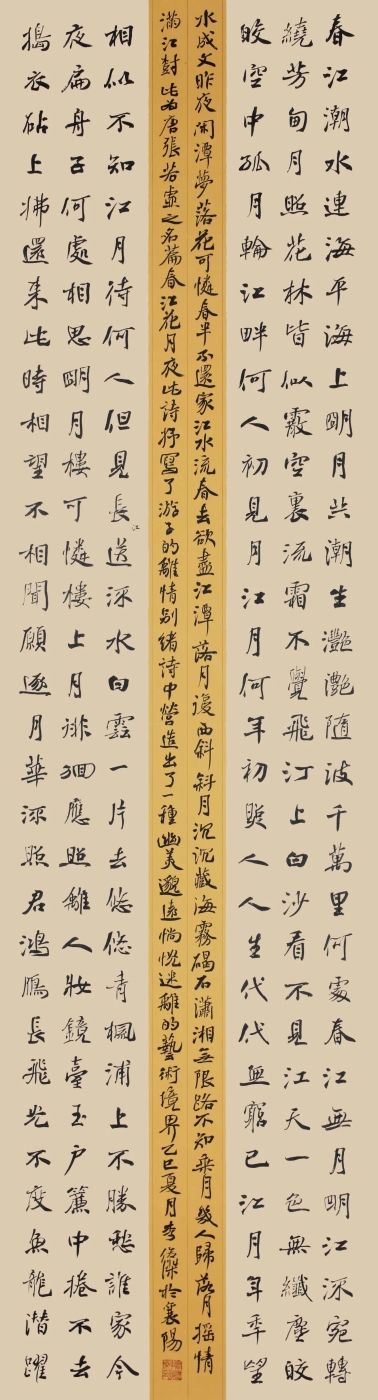 春江潮水連海平海上明月共潮生灩灩隨波千萬里何處春江無月明江流宛轉
繞芳甸月照花林皆似霰空裏流霜不覺飛汀上白沙看不見江天一色無纖塵皎
皎空中孤月輪江畔何人初見月江月何年初照人人生代代無窮已江月年年望
相似不知江月待何人但見長江送流水白雲一片去悠悠青楓浦上不勝愁誰家今
夜扁舟子何處相思明月樓可憐樓上月徘徊應照離人妝鏡臺玉戶簾中捲不去
搗衣砧上拂還來此時相望不相聞願逐月華流照君鴻鴈長飛光不度魚龍潛躍
水成文昨夜閑潭夢落花可憐春半不還家江水流春去欲盡江潭落月復西斜斜月沉沉藏海霧碣石瀟湘無限路不知乘月幾人歸落月搖情
滿江樹此為唐張若虛之名篇春江花月夜此詩抒寫了游子的離情別緒詩中營造出了一種幽美邈遠惝恍迷離的藝術境界乙巳夏月李俊傑於襄陽